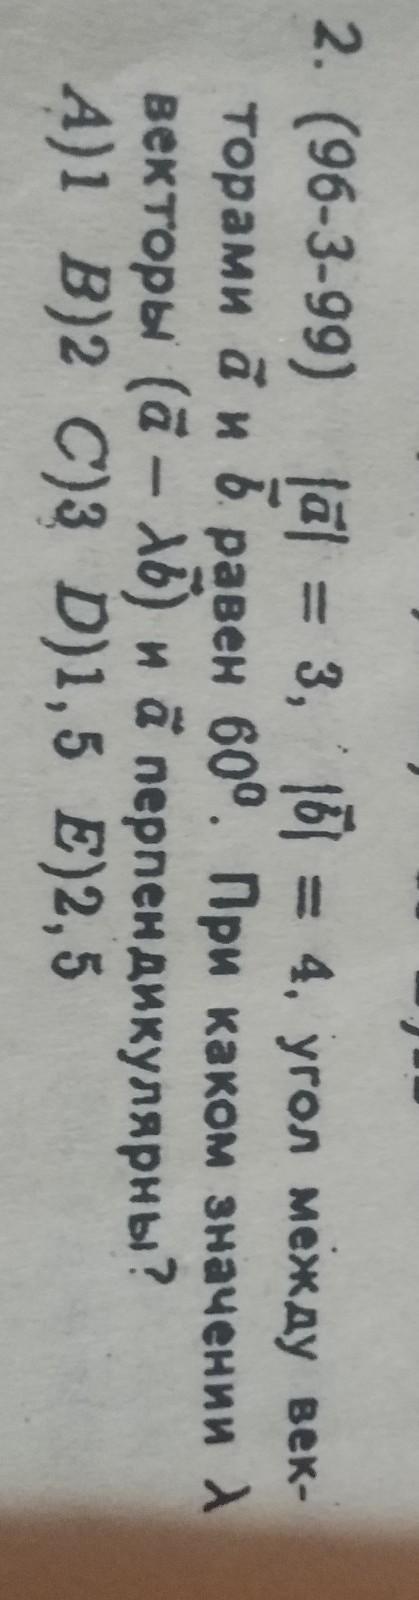 2. (96-3-99) |a⃗| = 3, |b⃗| = 4, угол между век-
торами a⃗ и b⃗ равен 60⁰. При каком значении λ
векторы (a⃗ − λb⃗) и a⃗ перпендикулярны?
A)1 B)2 C)3 D)1,5 E)2,5